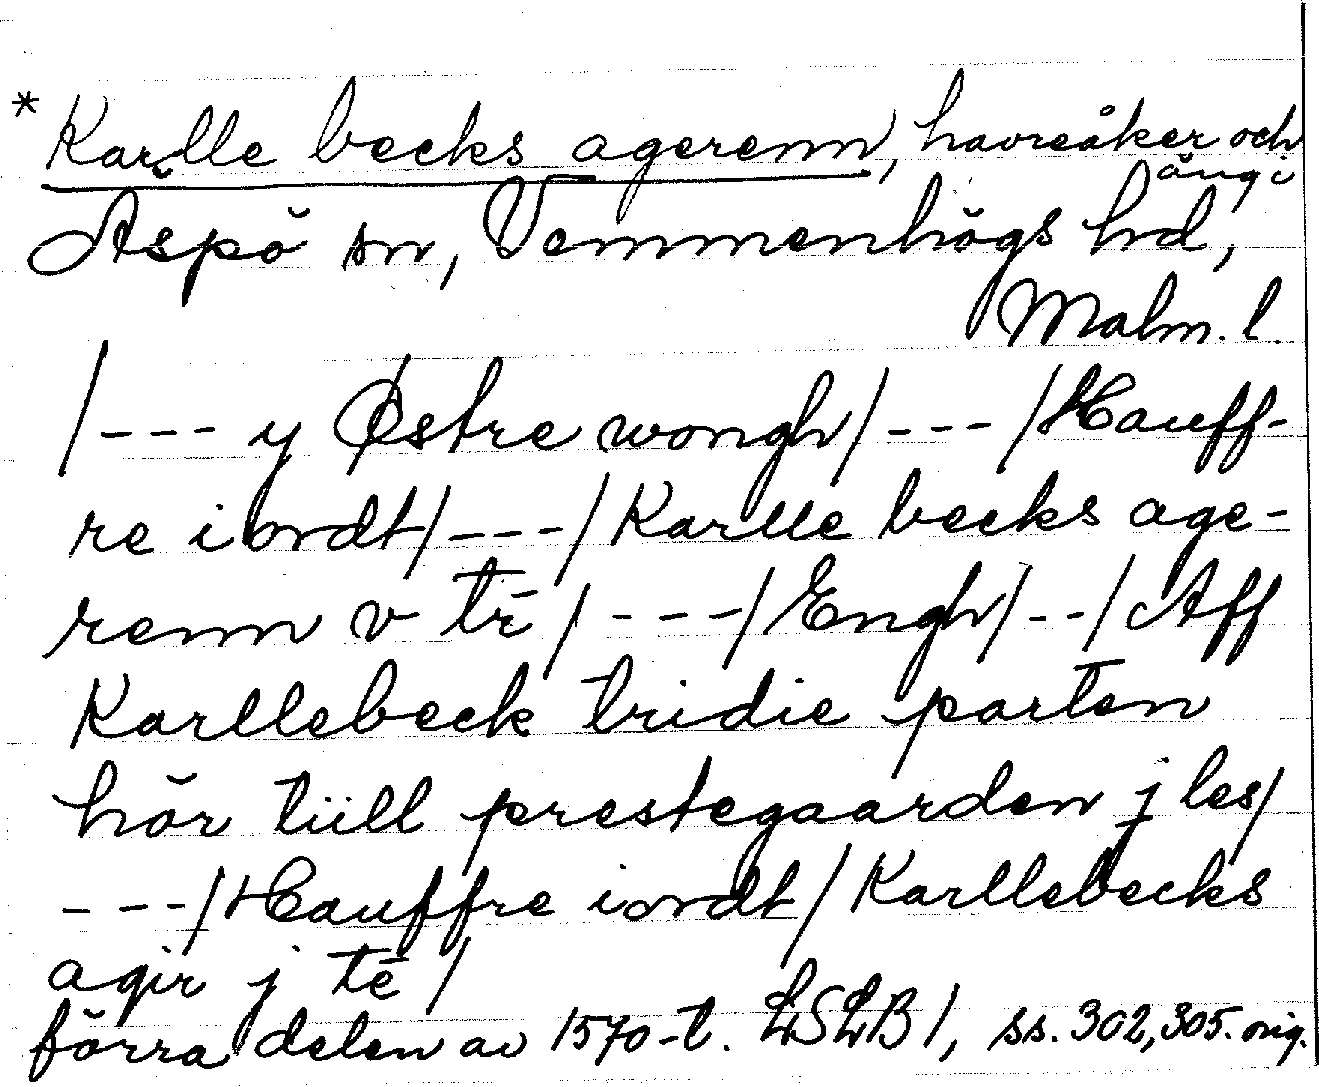 * Karlle becks agerenn, havreåker och
äng i
Aspö sn, Vemmenhögs hd,
Malm. l.
/--- y Østre wongh/---/Hauff-
re iordt/---/Karlle becks age-
renn v tr̄ē/---/Engh/--/Aff
Karllebeck tridie parten
hör tüll prestegaarden j les/
---/Hauffre iordt/Karllebecks
agir j tē/
förra delen av 1570-t. LSLB 1, ss. 302, 305. orig.